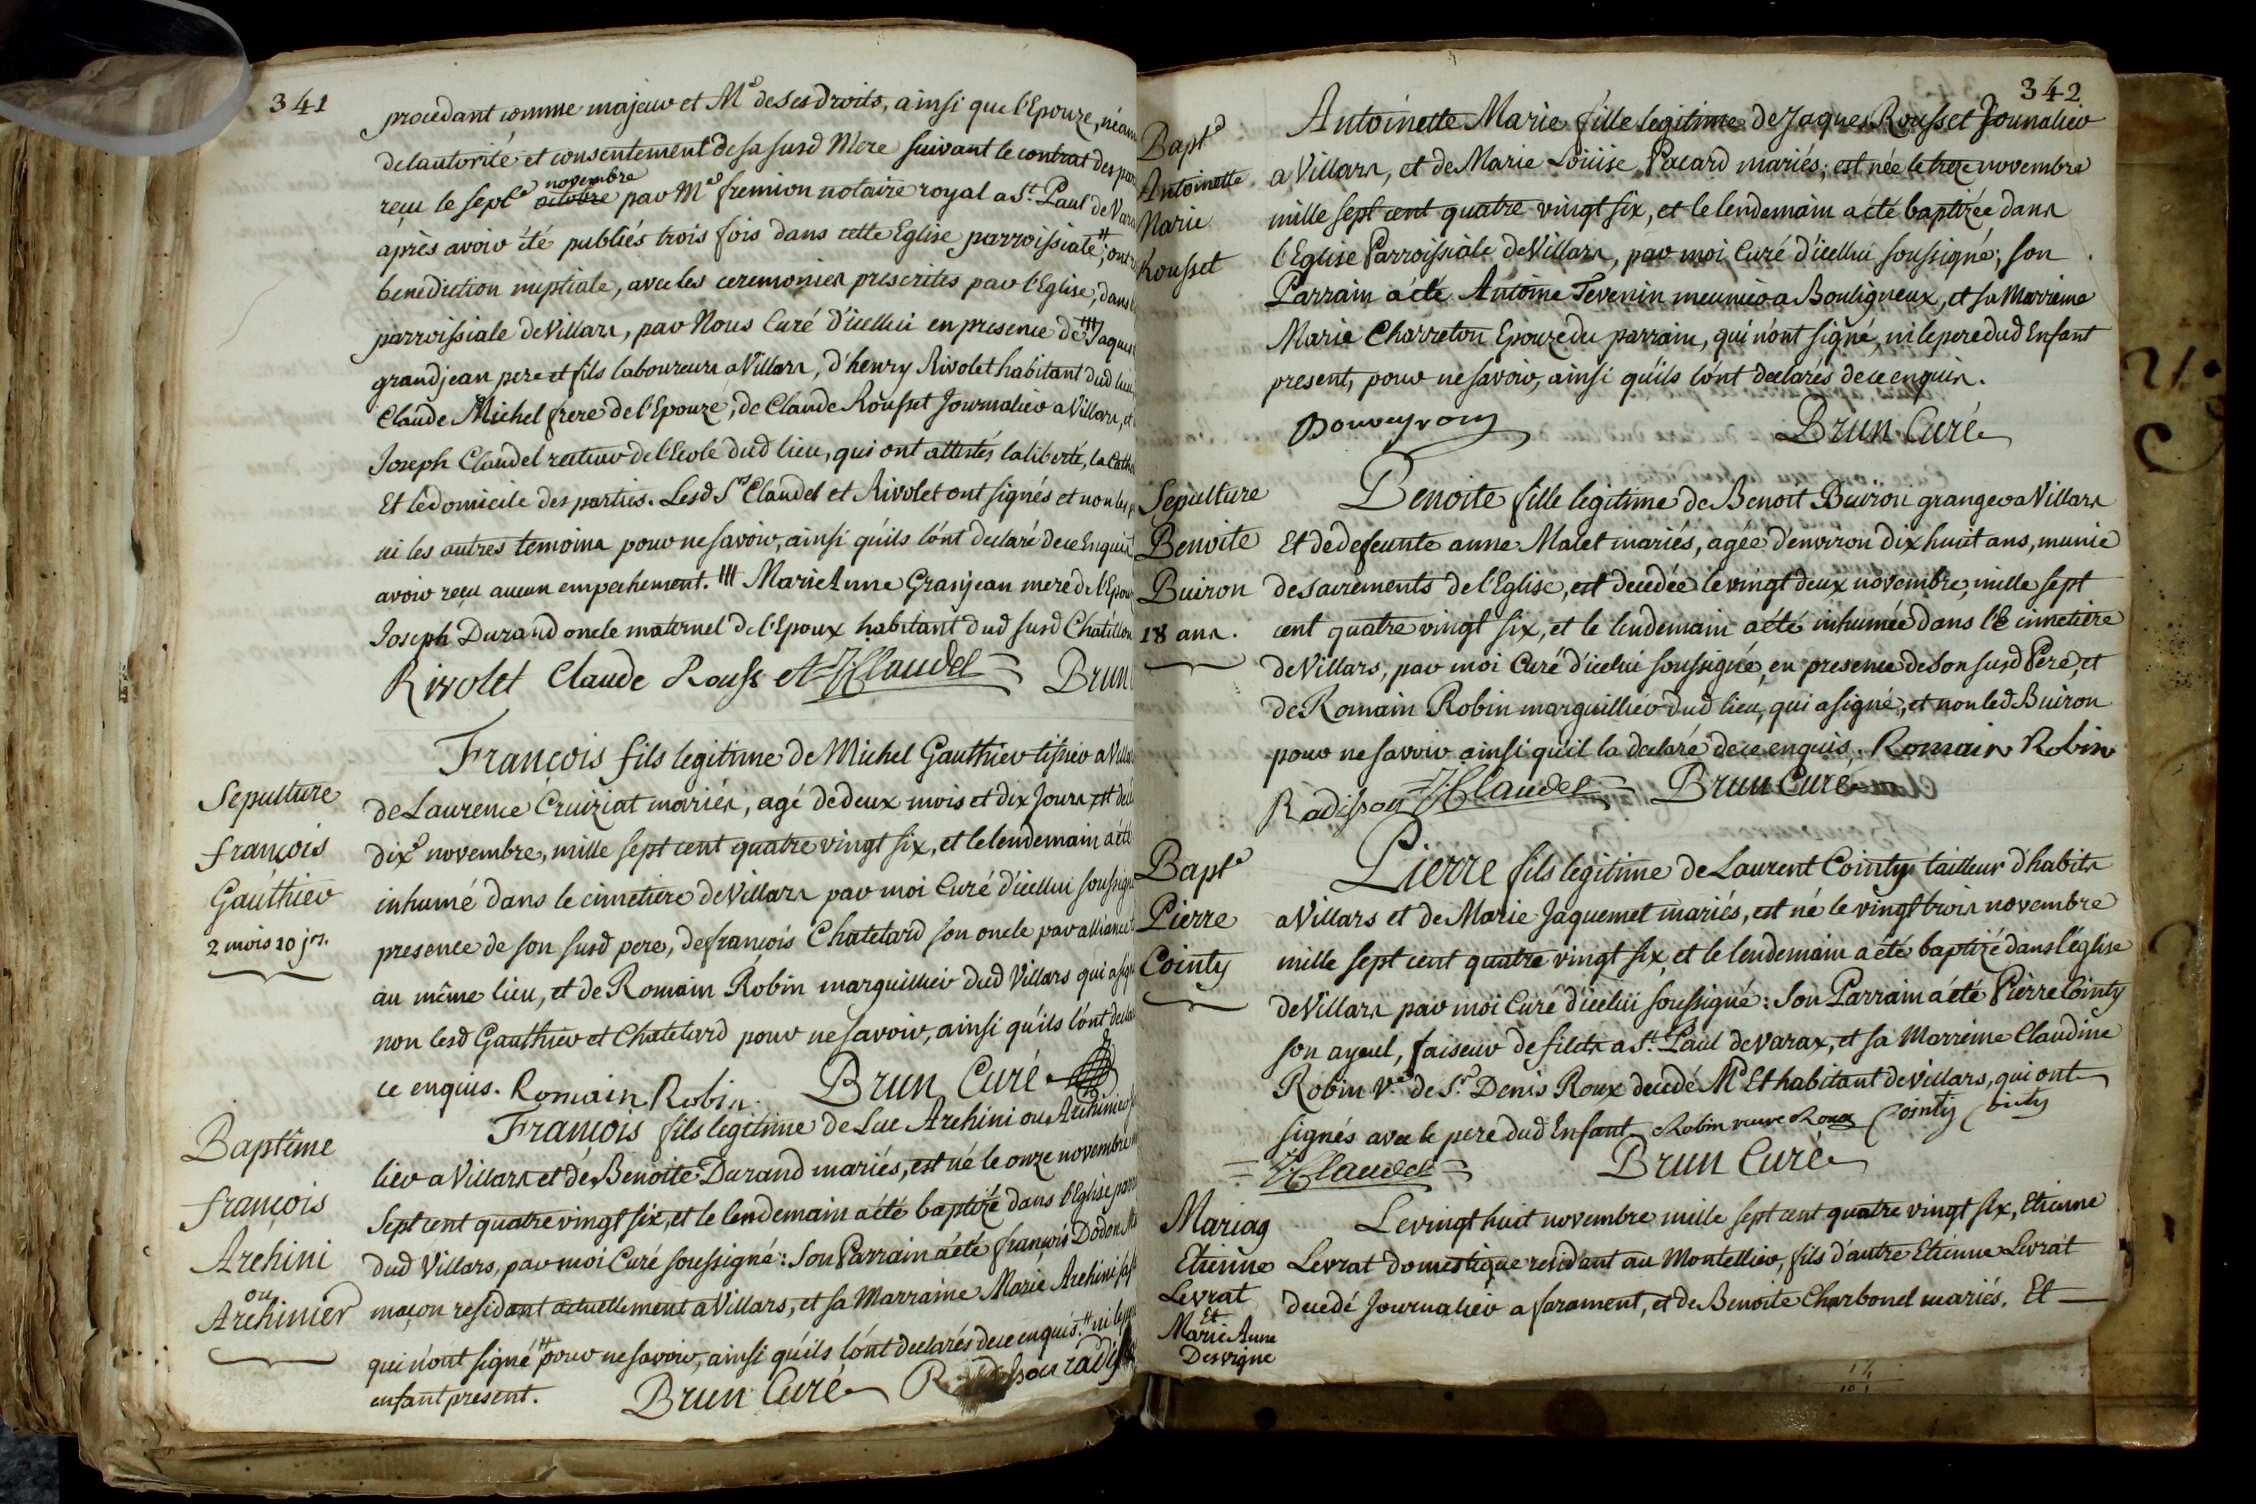 341
procedant comme majeur et M.e de ses droits, ainsi que l'Epouze, néam
de l'autorité et consentement de sa susd Mere suivant le contrat des par
reçu le sept.e octobre novembre par M.e fremion notaire royal a St. Paul de Vara
après avoir été publiés trois fois dans cette Eglise parroissiale #; ont r
benediction nuptiale, avec les ceremonies prescrites par l'Eglise; dans l
parroissiale de Villars, par Nous Curé d'icellui en presence de ### Jaques
grandjean pere et fils laboureurs a Villars, d'henry Rivolet habitant dud lieu,
Claude Michel frere de l'Epouze, de Claude Rousset Journalier a Villars, et
Joseph Claudel recteur de l'Ecole dud lieu, qui ont attestés la liberté, la Catho
Et le domicile des parties. Lesd Srs Claudel et Rivolet ont signés et non les p
ni les autres temoins pour ne savoir, ainsi qu'ils l'ont declaré de ce Enquis
avoir reçu aucun empechement. ### Marie Anne Granjean mere de l'Epou
Joseph Durand oncle maternel de l'Epoux habitant dud susd Chatillon
Rivolet Claude Rousset JClaudel Brun
Sepulture
françois
Gauthier
2 mois 10 jrs.
François fils legitime de Michel Gauthier tisſier a Villa
de Laurence Cruiziat mariés, agé de deux mois et dix Jours est dece
dix.e novembre, mille sept cent quatre vingt six, et le lendemain a été
inhumé dans le cimetiere de Villars par moi Curé d'icellui soussigné
presence de son susd pere, de françois Chatelard son oncle par alliance
au même lieu, et de Romain Robin marguillier dud Villars qui a signé
non lesd Gauthier et Chatelard pour ne savoir, ainsi qu'ils l'ont decla
ce enquis. Romain Robin. Brun Curé
Baptême
françois
Arehini
ou
Arehinier
François fils legitime de Luc Arehini ou Arehinier
lier a Villars et de Benoite Durand mariés, est né le onze novembre
Sept cent quatre vingt six, et le lendemain a été baptizé dans l'Eglise parr
dud Villars, par moi Curé soussigné: Son Parrain a été françois Dodon
maçon residant actuellement a Villars, et sa Marraine Marie Arehini
qui n'ont signé # pour ne savoir, ainsi qu'ils l'ont declarés de ce enquis. # ni le pere
enfant present. Brun Curé
342
Bapt.e
Antoinette
Marie
Rousset
Antoinette Marie fille legitime de Jaques Rousset Jounalier
a Villars, et de Marie Loüise Pacard mariés; est née le treze novembre
mille sept cent quatre vingt six, et le lendemain a été baptizée dans
l'Eglise Parroissiale de Villars, par moi Curé d'icellui soussigné; son
Parrain a été Antoine Tevenin meunier a Bouligneux, et sa Marreine
Marie Charreton Epouze du parrain, qui n'ont signé, ni le pere dud Enfant
present, pour ne savoir, ainsi qu'ils l'ont declarés de ce enquis.
Bouveyron Brun Curé
Sepulture
Benoite
Buiron
18 ans.
Benoite fille legitime de Benoit Buiron granger a Villars
Et de defeunte anne Malet mariés, agée d'environ dix huit ans, munie
des acrements de l'Eglise, est decedée le vingt deux novembre, mille sept
cent quatre vingt six, et le lendemain a été inhumée dans le cimetiere
de Villars, par moi Curé d'icelui soussigné, en presence de son susd Pere, et
de Romain Robin marguillier dud lieu, qui a signé, et non led Buiron
pour ne savoir ainsi qu'il la declaré de ce enquis. Romain Robin
Radisson JClaudel Brun Curé
Bapt.e
Pierre
Cointy
Pierre fils legitime de Laurent Cointy tailleur d'habits
a Villars et de Marie Jaquemet mariés, est né le vingt trois novembre
mille sept cent quatre vingt six, et le lendemain a été baptizé dans l'église
de Villars par moi Curé d'icelui soussigné: Son Parrain a été Pierre Cointy
son ayeul, faiseur de filets a St. Paul de Varax, et sa Marreine Claudine
Robin V.e de Sr. Denis Roux decedé Md Et habitant de Villars, qui ont
signés avec le pere dud Enfant Robin veuve Roux Cointy Cointy
JClaudel Brun Curé
Mariag
Etienne
Levrat
Et
Marie Anne
Desvigne
Le vingt huit novembre mille sept cent quatre vingt six, Etienne
Levrat domestique residant au Montellier, fils d'autre Etienne Levrat
decedé Journalier a farament, et de Benoite Charbonel mariés. Et